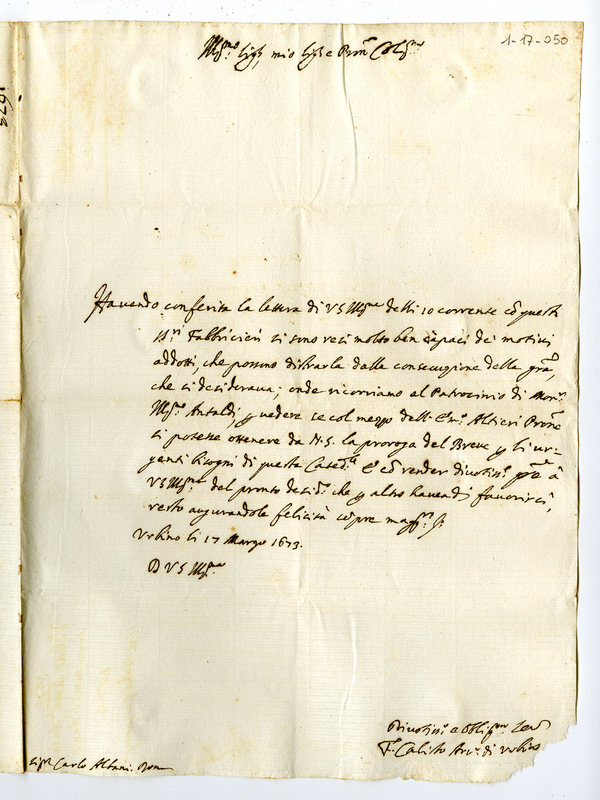 1-17-050
Ill.mo Sig.r mio Sig.r e Pron Col.mo
1673
Havendo conferita la lettera di VS Ill.ma delli 10 corrente cō questi
SS.ri Fabbricieri si sono resi molto ben capaci de motivi
addotti, che possono distrarla dalla consecuzione della gra,
che si desiderava; onde ricorriamo al Patrocinio di Mon.r
Ill.mo Antaldi, p vedere se col mezzo dell Em.o Altieri Prone
si potesse ottenere da N.S. la proroga del Breve p li ur=
genti bisogni di questa Cated.le E cō render divotiss.e à
VS Ill.ma del pronto desid.o che p altro havendi favorirci,
resto augurandole felicità sēpre magg.ri
Urbino li 17 Marzo 1673.
D VS Ill.ma
Divotiss.o e Obblig.mo
F. Calisto Arc.o di Urbino
Sig.r Carlo Albani. Roma